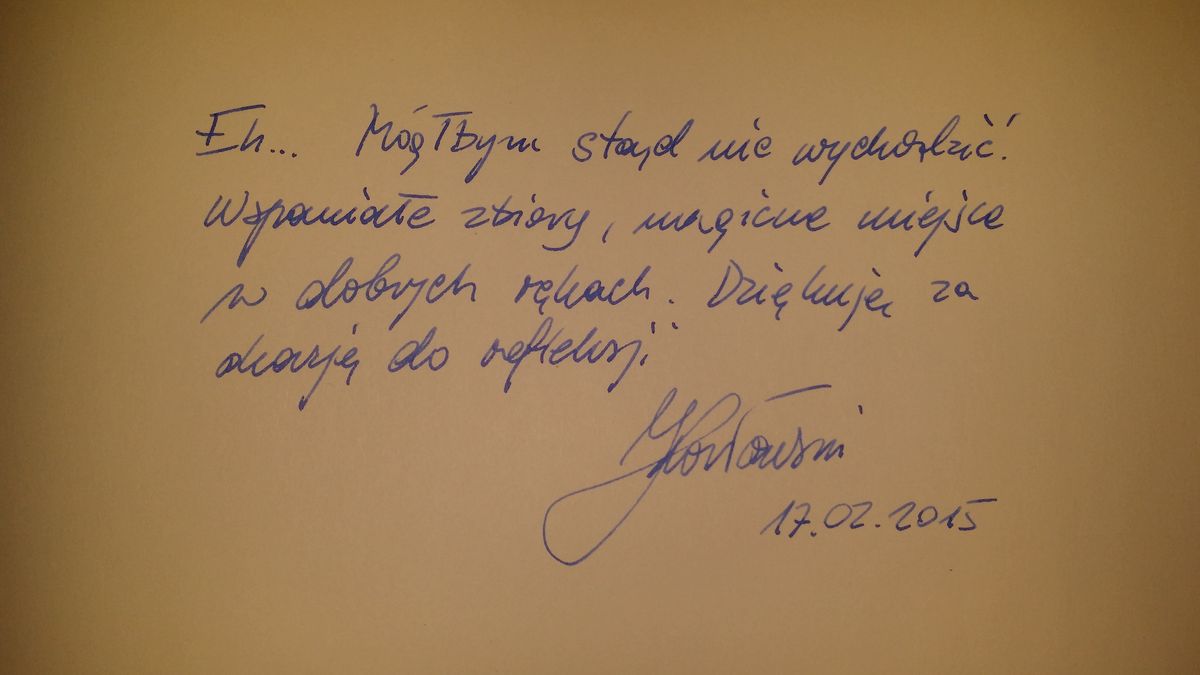 Eh... Mógłbym stąd nie wychodzić.
Wspaniałe zbiory, magiczne miejsce
w dobrych rękach. Dziękuję za
okazję do refleksji
17.02.2015